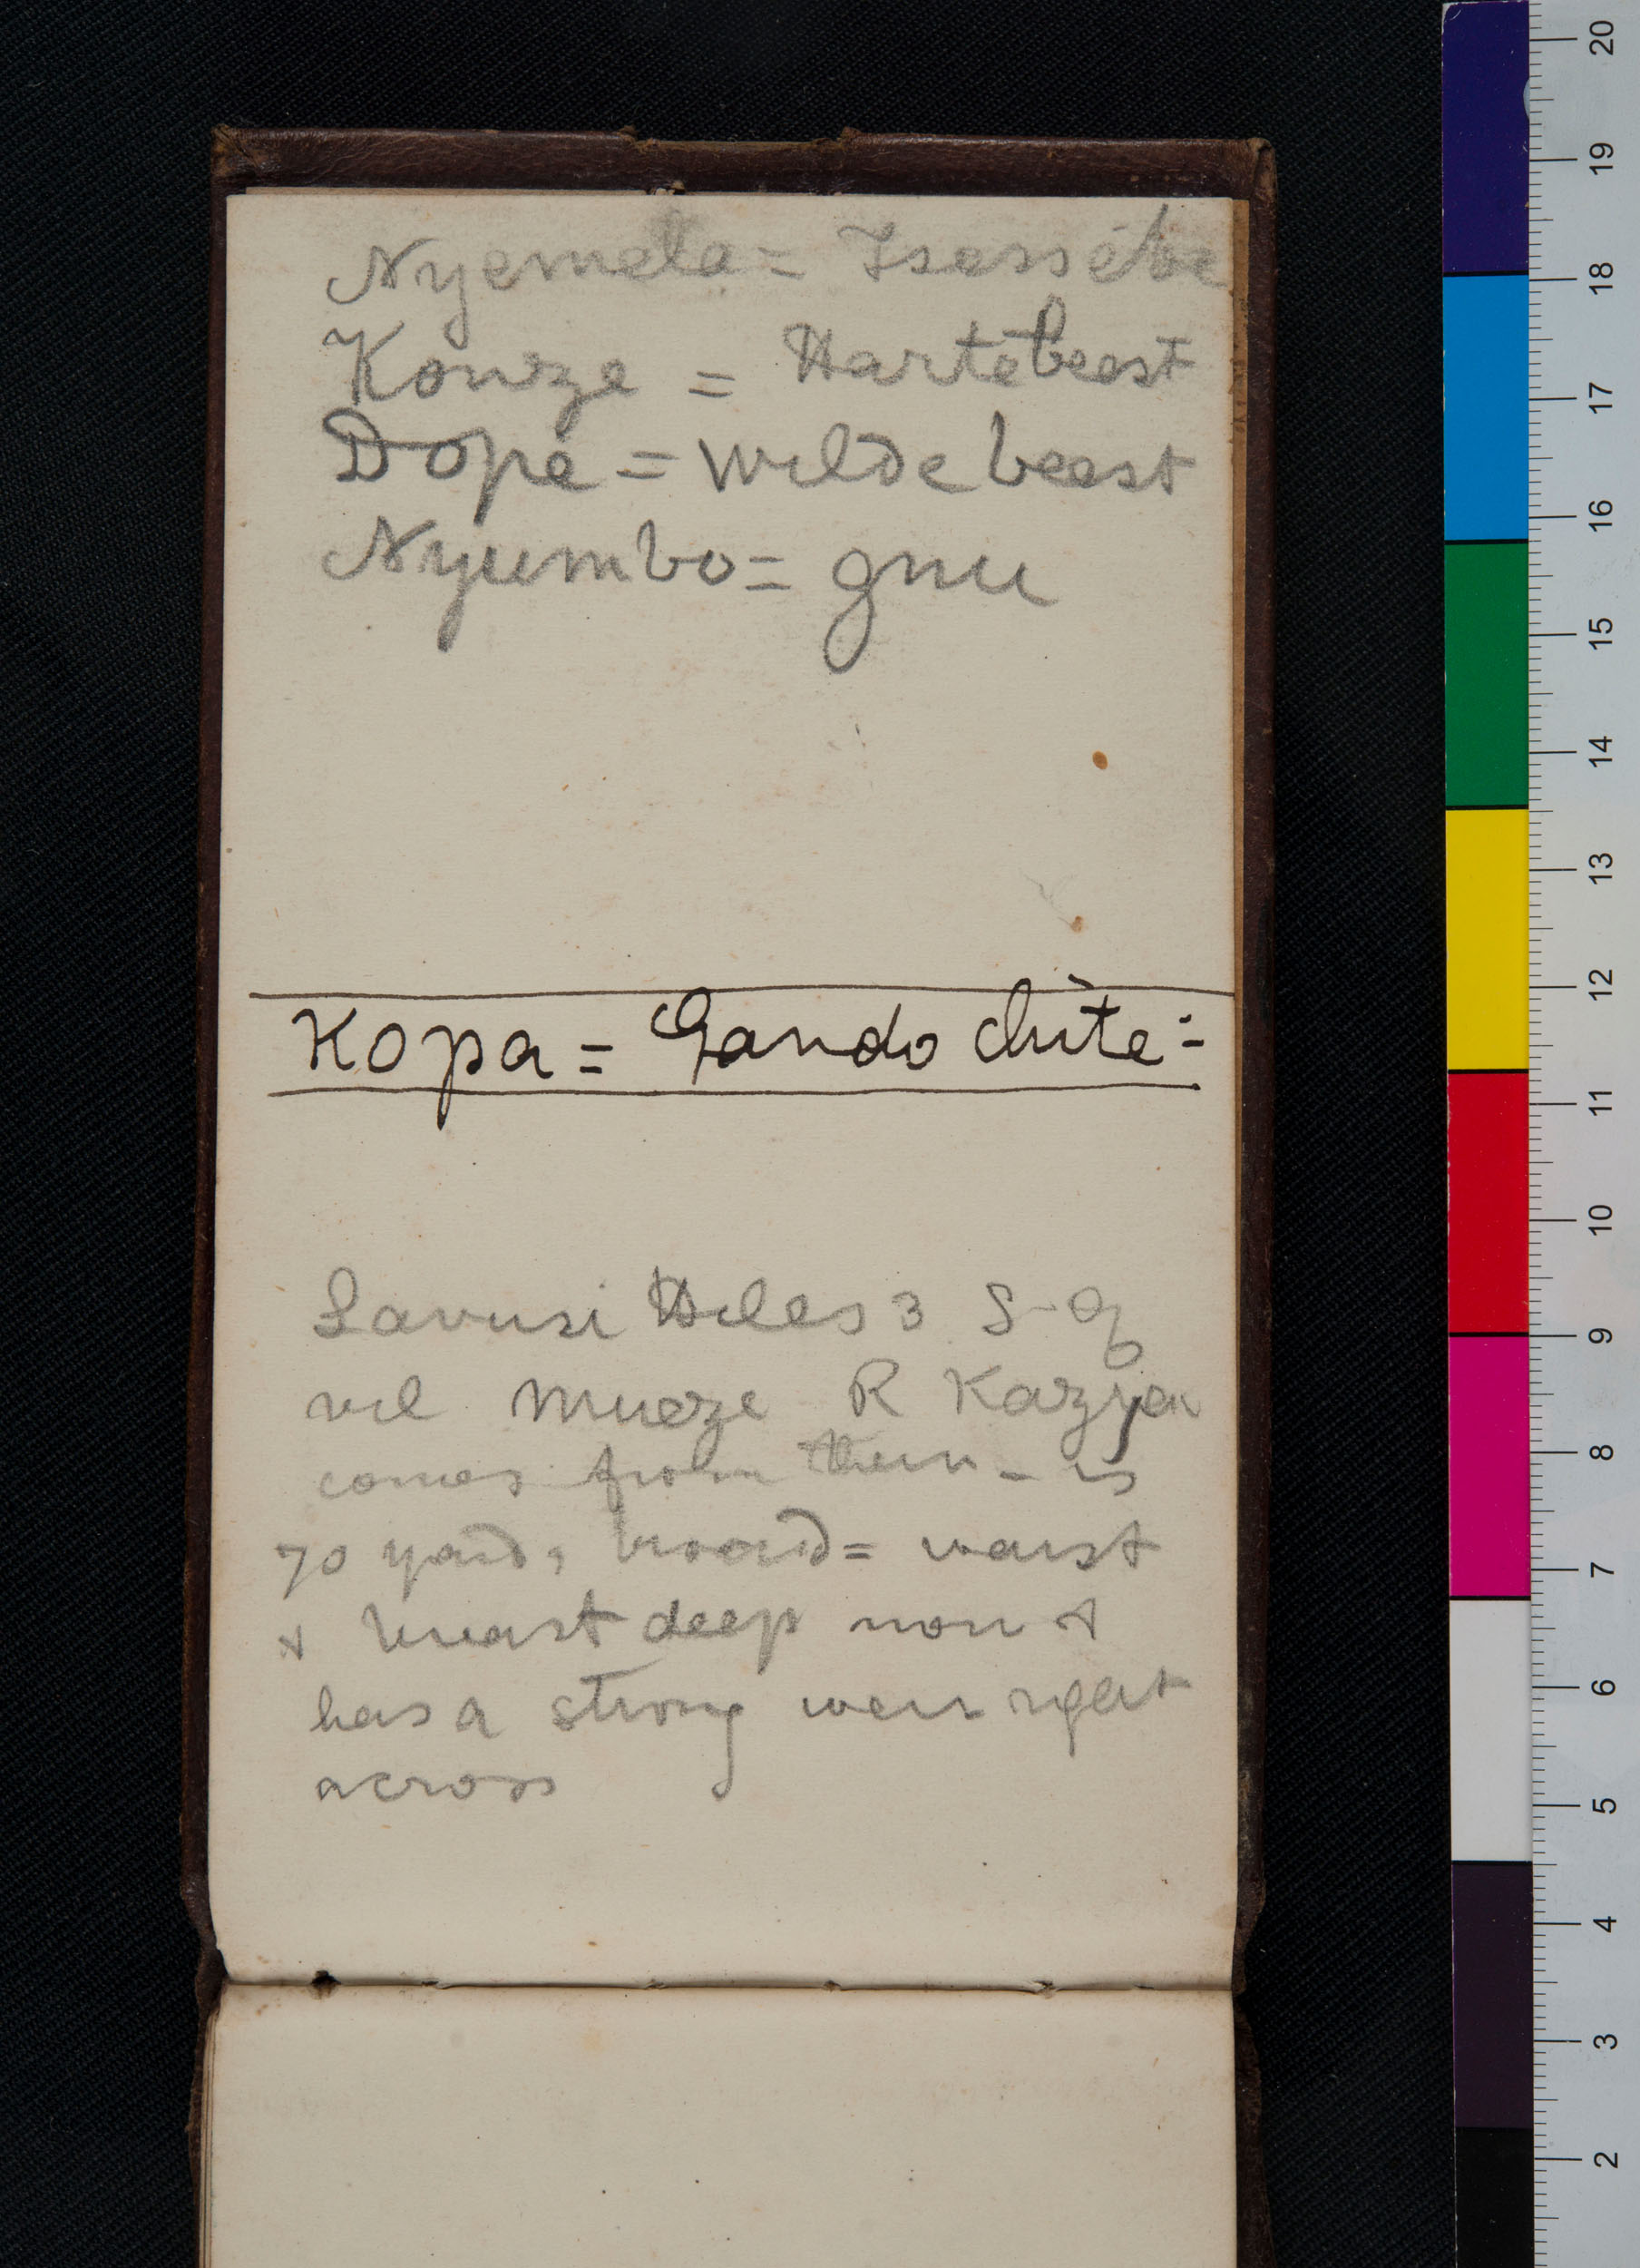 Nyemela = Tsessébe
Konze = Hartebeest
Dopé = Wildebeest
Nyumbo = gnu
Kopa = Gando chite =
Lavusi Hiles 3 S - of
vil Muoze R Kazya
comes from them - is
70 yards broad = waist
& breast deep now &
has a strong weir right
across
20
19
18
17
16
15
14
13
12
11
10
9
8
7
6
5
4
3
2